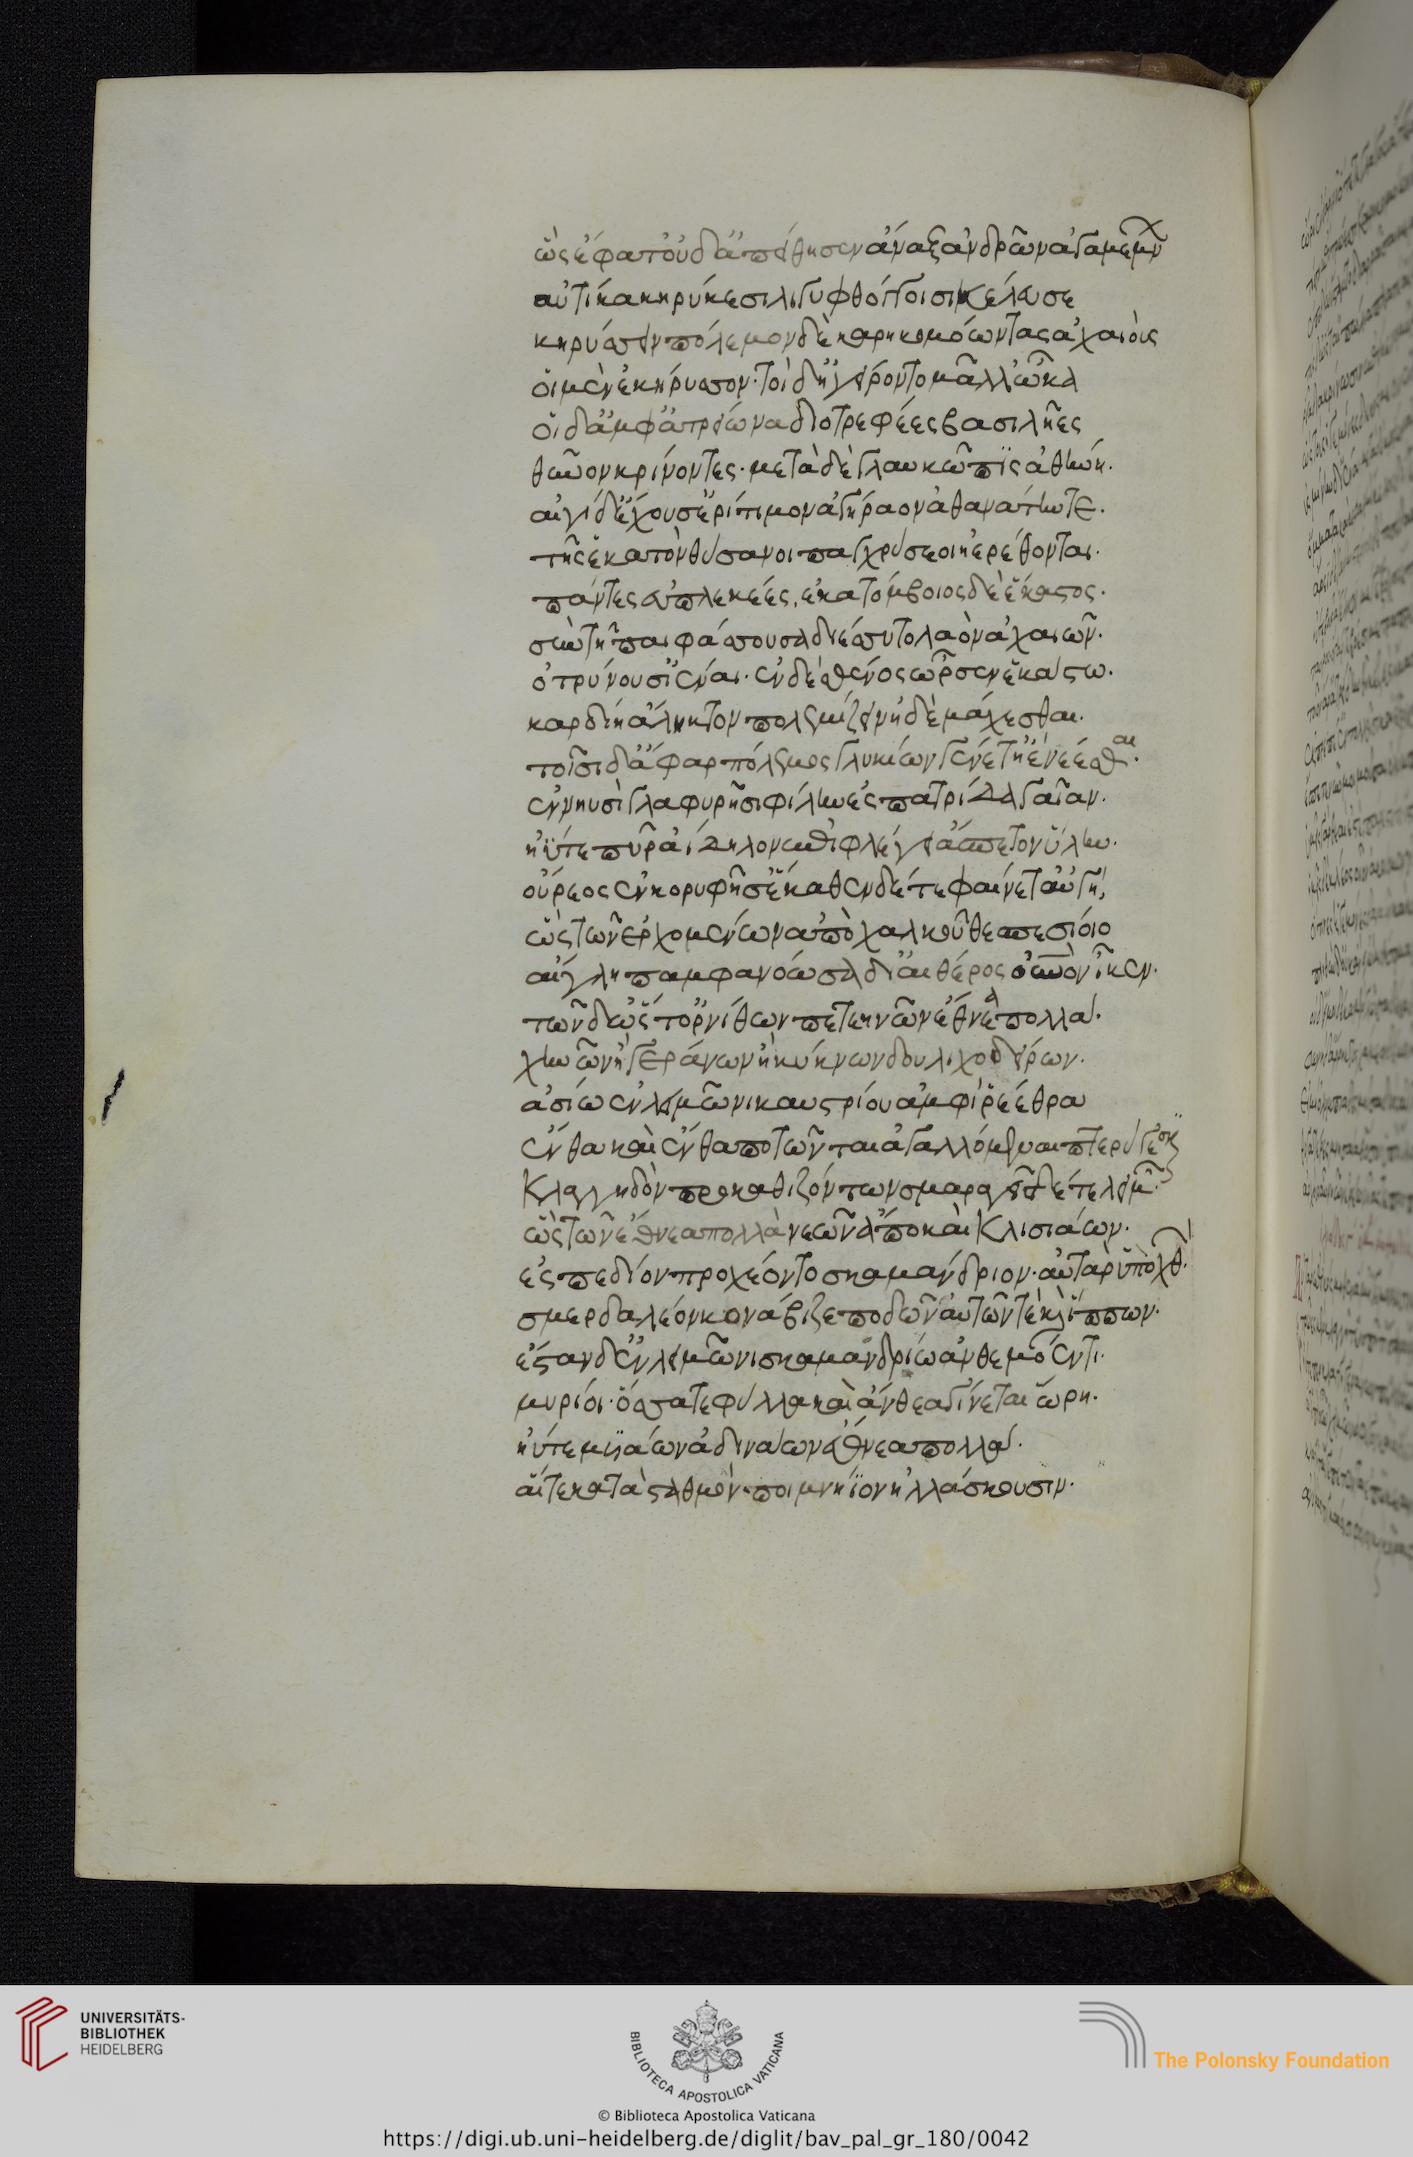 ὣς ἔφατ οὐδ ἀπίθησεν ἄναξ ἀνδρῶν ἀγαμέμνων
αὐτίκα κηρύκεσι λιγυφθόγγοισι κέλευσε
κηρύσσειν πόλεμον δὲ καρηκομόωντας ἀχαιούς
οἱ μὲν ἐκήρυσσον· τοὶ δ ἠγείροντο μάλλ ὦκα
οἱ δ ἀμφ ἀτρείωνα διοτρεφέες βασιλῆες
θῦνον κρίνοντες· μετὰ δὲ γλαυκῶπις ἀθήνη·
αἰγίδ ἔχουσ ἐρίτιμον ἀγήραον ἀθανάτην τε·
τῆς ἑκατὸν θύσανοι παγχρύσεοι ἠερέθονται·
πάντες εὐπλεκέες, ἑκατόμβοιος δὲ ἕκαστος·
σὺν τῆ παιφάσσουσα διέσσυτο λαὸν ἀχαιῶν·
ὀτρύνουσ ἰέναι· ἐν δὲ σθένος ὦρσεν ἑκάστω·
καρδίη ἄληκτον πολεμίζειν ἠδὲ μάχεσθαι·
τοῖσι δ ἄφαρ πόλεμος γλυκίων γένετ ἠὲ νέεσθαι·
ἐν νηυσὶ γλαφυρῆσι φίλην ἐς πατρίδα γαῖαν·
ἠΰτε πῦρ ἀΐδηλον ἐπιφλέγει ἄσπετον ὕλην·
οὔρεος ἐν κορυφῆς ἕκαθεν δέ τε φαίνετ αὐγή,
ὣς τῶν ἐρχομένων ἀπὸ χαλκοῦ θεσπεσίοιο
αἴγλη παμφανόωσα δι αἰθέρος οὐρανὸν ἷκεν·
τῶν δ ὥς τ ὀρνίθων πετεηνῶν ἔθνεα πολλά·
χηνῶν ἢ γεράνων ἢ κύκνων δουλιχοδείρων·
ἀσίω ἐν λειμῶνι καυστρίου ἀμφὶ ῥέεθρα
ἔνθα καὶ ἔνθα ποτῶνται ἀγαλλόμεναι πτερύγεσσι
κλαγγηδὸν προκαθιζόντων σμαραγεῖ δέ τε λειμών·
ὣς τῶν ἔθνεα πολλὰ νεῶν ἄπο καὶ κλισιάων·
ἐς πεδίον προχέοντο σκαμάνδριον· αὐτὰρ ὑπὸ χθὼν·
σμερδαλέον κονάβιζε ποδῶν αὐτῶν τὲ καὶ ἵππων·
ἔσταν δ ἐν λειμῶνι σκαμανδρίω ἀνθεμόεντι·
μυρίοι· ὅσσα τε φύλλα καὶ ἄνθεα γίνεται ὥρη·
ἠΰτε μυϊάων ἀδινάων ἔθνεα πολλά·
αἵτε κατὰ σταθμὸν· ποιμνήϊον ἠλλάσκουσιν·
UNIVERSITÄTS-
BIBLIOTHEK
HEIDELBERG
BIBLIOTECA APOSTOLICA VATICANA
The Polonsky Foundation
© Biblioteca Apostolica Vaticana
https://digi.ub.uni-heidelberg.de/diglit/bav_pal_gr_180/0042